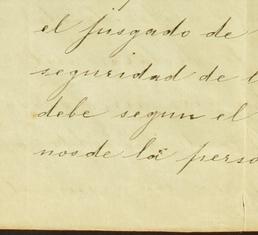 el jusgado de
seguridad de l
debe segun el
nos de la perso